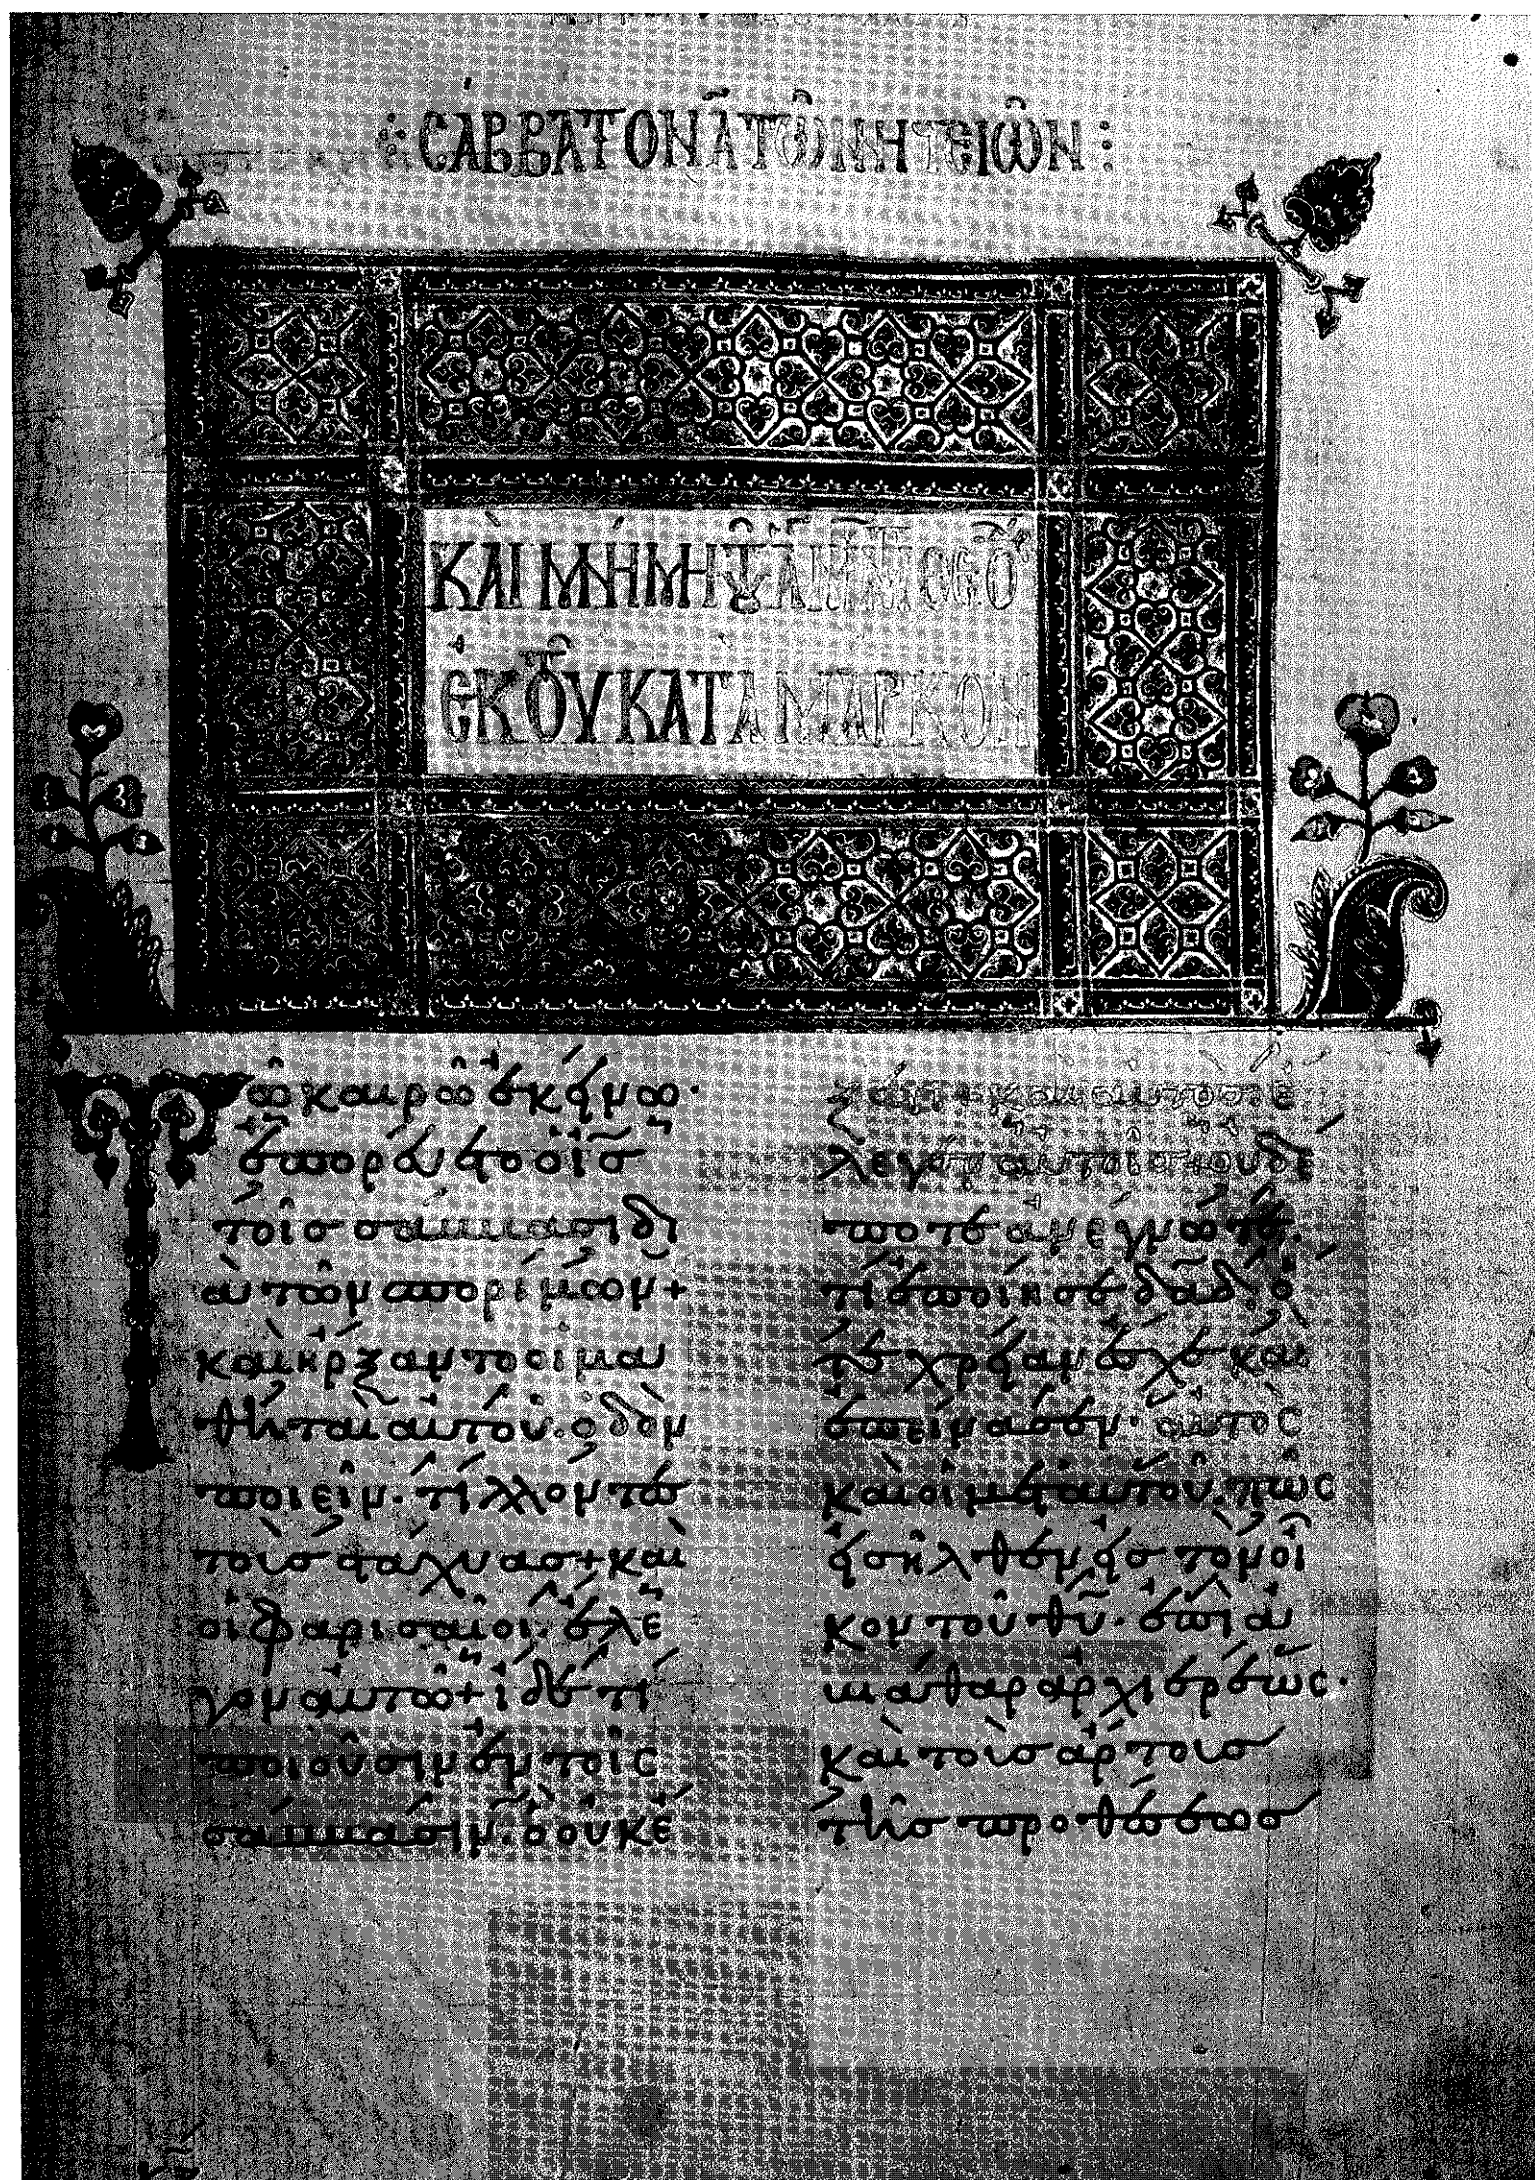 ΣΑΒΒΑΤΟΝ Α ΤΩΝ ΝΗΣΤΕΙΩΝ :
ΚΑΙ ΜΝΗΜΗ
ΕΚ ΤΟΥ ΚΑΤΑ ΜΑΡΚΟΝ
Τῶ καιρῶ ἐκείνω·
ἐπορεύετο ὁ ἰς
τοῖς σάββασι δι
ὰ τῶν σπορίμων+
καὶ ἤρξαντο οἱ μα
θηταὶ αὐτοῦ ὁδὸν
ποιεῖν· τίλλοντες
τοὺς στάχυας+ καὶ
οἱ φαρισαῖοι ἔλε
γον αὐτῶ+ ἴδε τί
ποιοῦσιν ἐν τοῖς
σάββασιν· ὃ οὐκ ἔ
ξεστι+ καὶ αὐτὸς ἔ
λεγεν αὐτοῖς+ οὐδέ
ποτε ἀνέγνωτε·
τί ἐποίησε δαδ· ὅ
τε χρείαν ἔσχε καὶ
ἐπείνασεν· αὐτὸς
καὶ οἱ μετ' αὐτοῦ· πῶς
εἰσῆλθεν εἰς τὸν οἶ
κον τοῦ θυ· ἐπὶ ἀ
βιάθαρ ἀρχιερέως·
καὶ τοὺς ἄρτους
τῆς προθέσεως